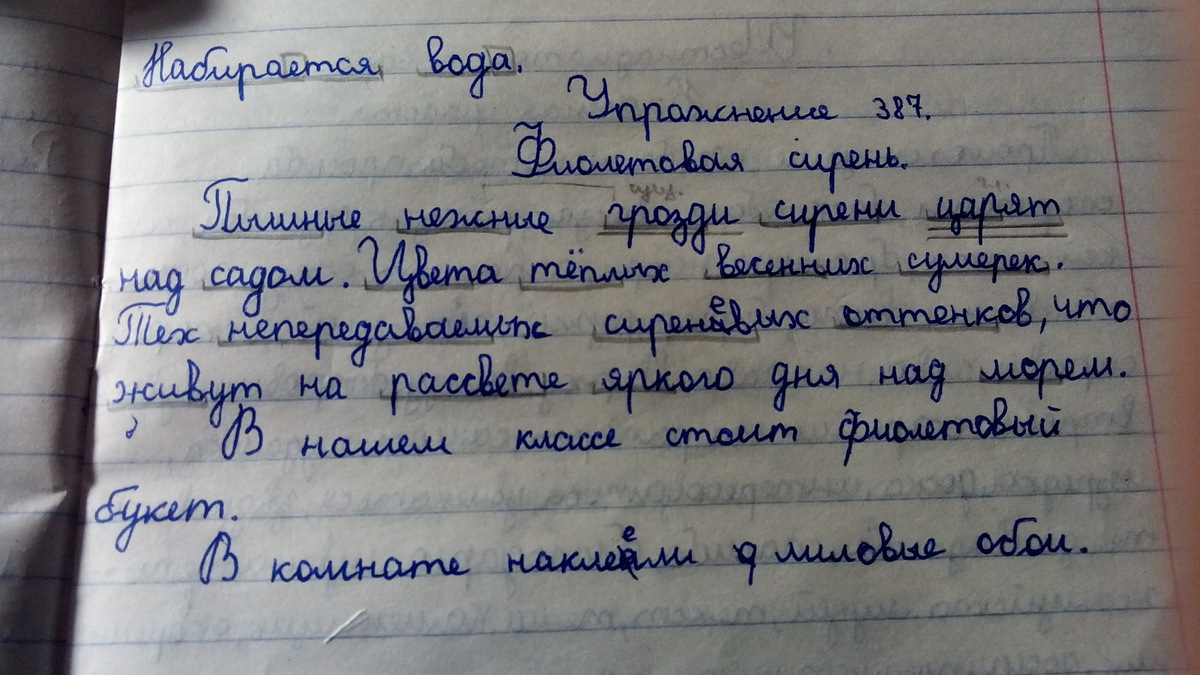 Набирается вода.
Упражнение 387.
Фиолетовая сирень.
сущ.
Пышные нежные грозди сирени царят
над садом. Цвета тёплых весенних сумерек.
Тех непередаваемых сиреневых оттенков, что
живут на рассвете яркого дня над морем.
В нашем классе стоит фиолетовый
букет.
В комнате наклеели лиловые обои.